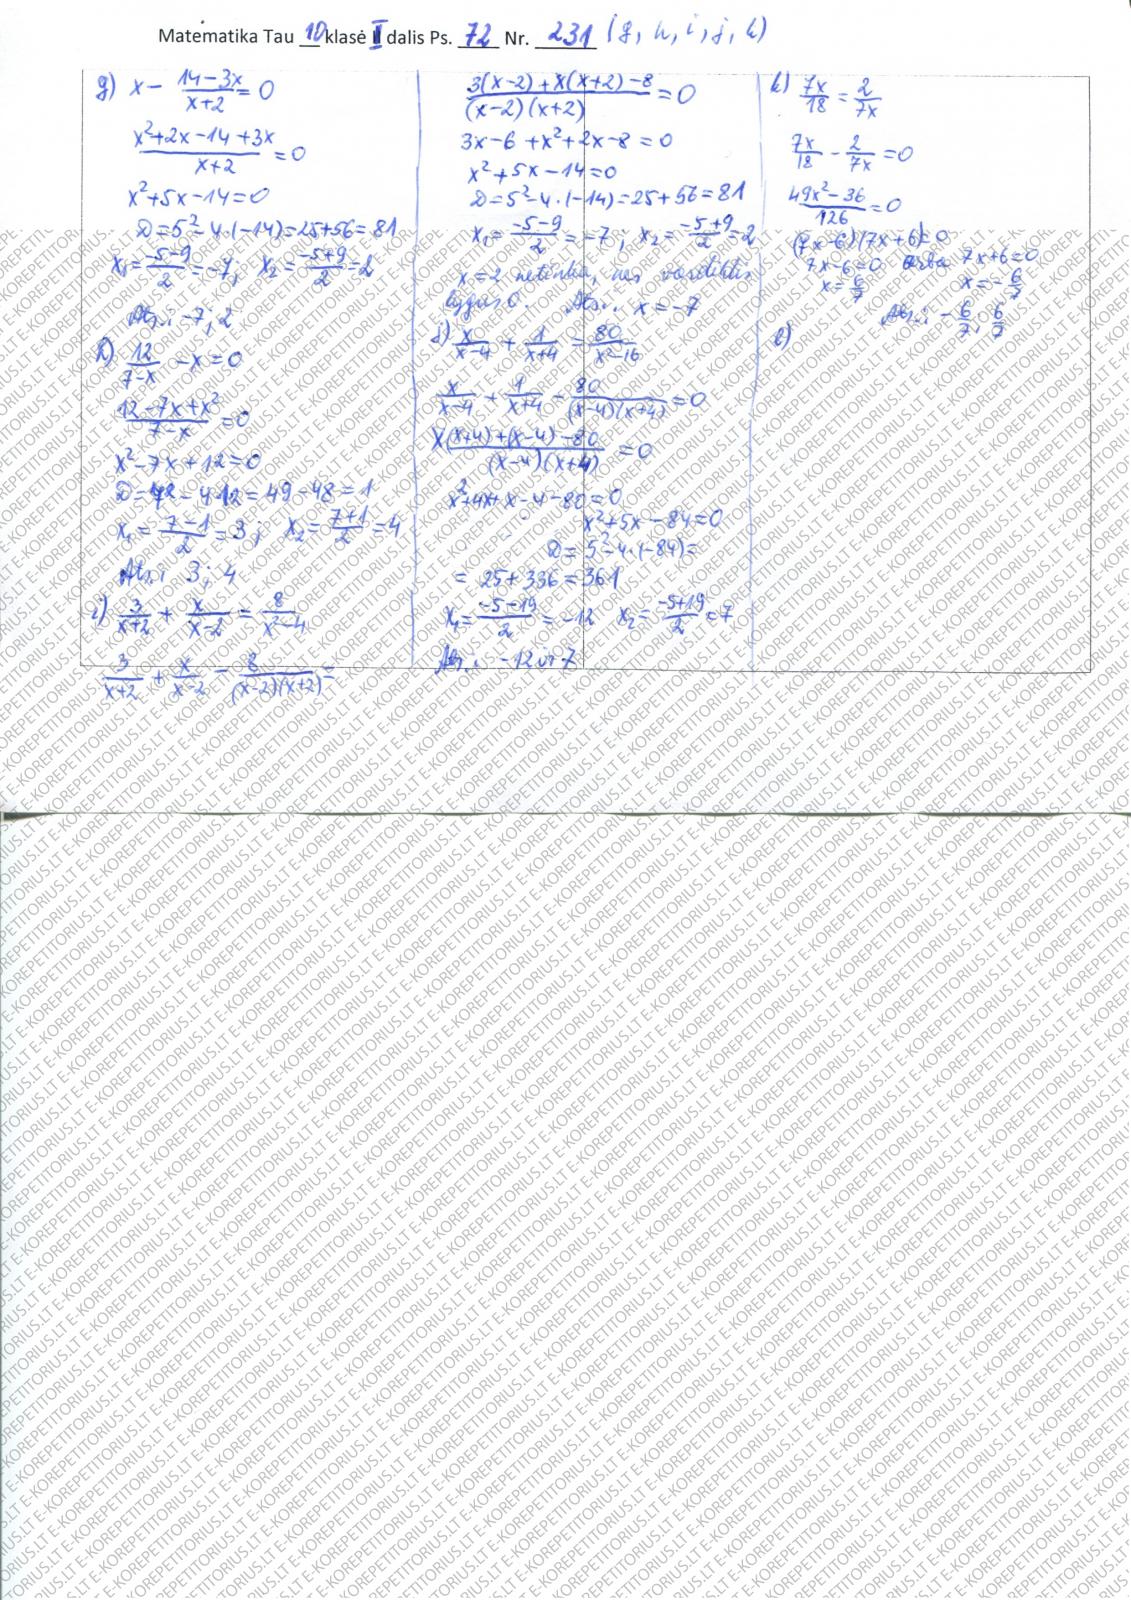 Matematika Tau 10 klasė II dalis Ps. 72 Nr. 231 (g, h, i, j, k)
g) x - (14-3x)/(x+2) = 0
(x²+2x-14+3x)/(x+2) = 0
x²+5x-14=0
D=5²-4·(-14)=25+56=81
x₁=(-5-9)/2=-7; x₂=(-5+9)/2=2
Ats.: -7; 2
h) 12/(7-x) - x = 0
(12-7x+x²)/(7-x) = 0
x²-7x+12=0
D=7²-4·12=49-48=1
x₁=(7-1)/2=3; x₂=(7+1)/2=4
Ats.: 3; 4
i) 3/(x+2) + x/(x-2) = 8/(x²-4)
3/(x+2) + x/(x-2) - 8/((x-2)(x+2)) =
(3(x-2)+x(x+2)-8)/((x-2)(x+2)) = 0
3x-6+x²+2x-8=0
x²+5x-14=0
D=5²-4·(-14)=25+56=81
x₁=(-5-9)/2=-7; x₂=(-5+9)/2=2
x=2 netinka, nes vardiklis
lygus 0. Ats.: x=-7
j) x/(x-4) + 1/(x+4) = 80/(x²-16)
x/(x-4) + 1/(x+4) - 80/((x-4)(x+4)) = 0
(x(x+4)+(x-4)-80)/((x-4)(x+4)) = 0
x²+4x+x-4-80=0
x²+5x-84=0
D=5²-4·(-84)=
=25+336=361
x₁=(-5-19)/2=-12 x₂=(-5+19)/2=7
Ats.: -12 ir 7
k) 7x/18 = 2/7x
7x/18 - 2/7x = 0
(49x²-36)/126 = 0
(7x-6)(7x+6)=0
7x-6=0 arba 7x+6=0
x=6/7 x=-6/7
Ats.: -6/7; 6/7
l)
E-KOREPETITORIUS.LT